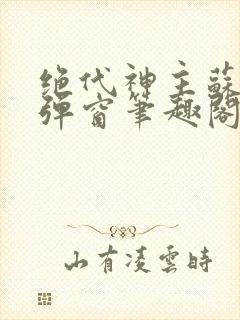 绝代神主蘇
弹窗笔趣阁
山有凌雲時